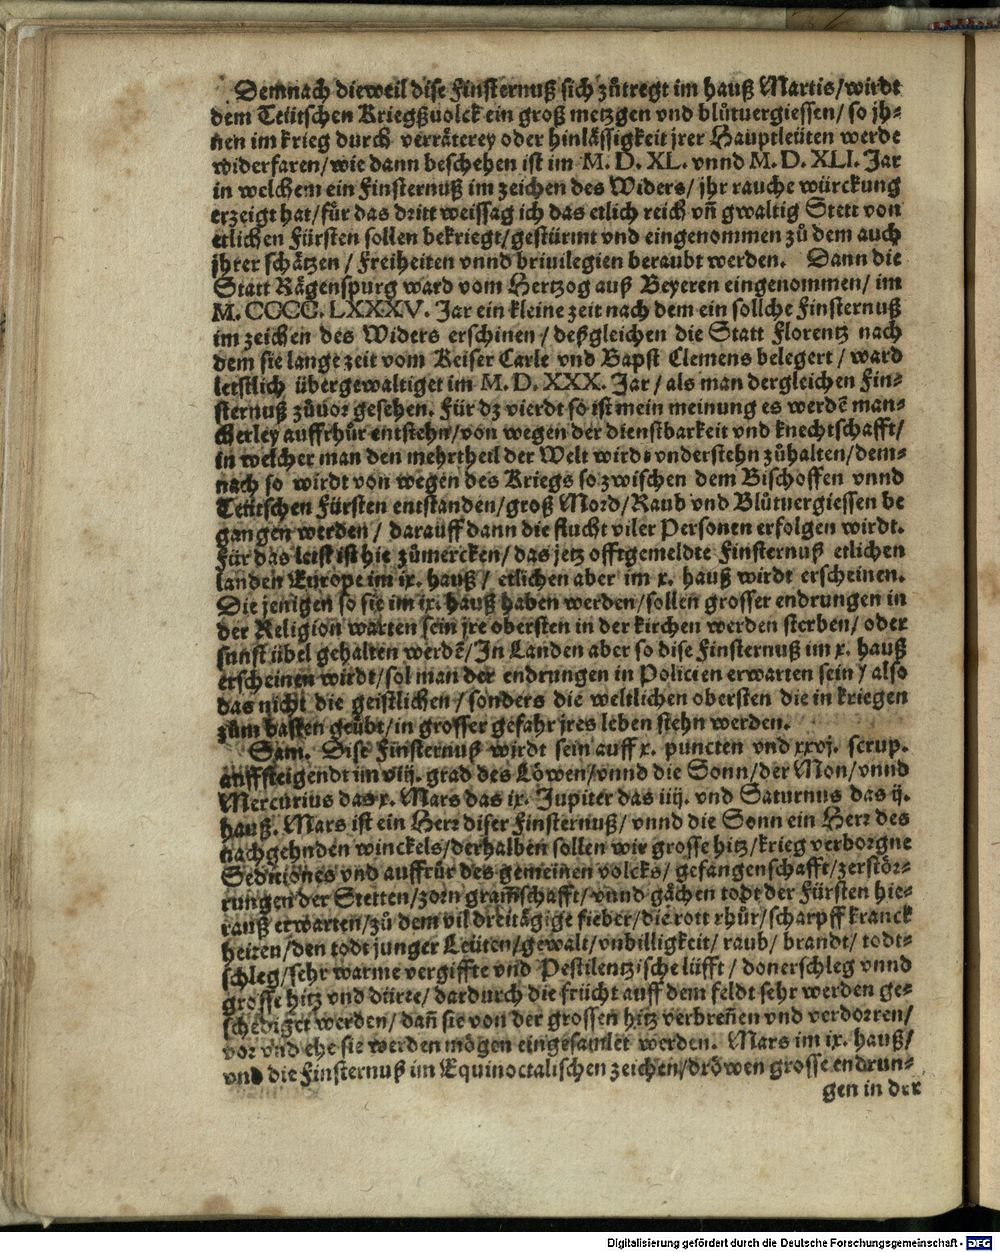 Demnach dieweil dise Finsternuß sich zůtregt im hauß Martis/wirdt
dem Teütschen Kriegßuolck ein groß metzgen vnd blůtuergiessen/ so jh-
nen im krieg durch verräterey oder hinlässigkeit jrer Hauptleüten werde
widerfaren/wie dann beschehen ist im M. D. XL. vnnd M. D. XLI. Jar
in welchem ein Finsternuß im zeichen des Widers/ jhr rauche würckung
erzeigt hat/für das dritt weissag ich das etlich reich vn̄ gwaltig Stett von
etlichen Fürsten sollen bekriegt/gestürmt vnd eingenommen zů dem auch
jhrer schätzen / Freiheiten vnnd briuilegien beraubt werden. Dann die
Statt Rägenspurg ward vom Hertzog auß Beyeren eingenommen/ im
M. CCCC. LXXXV. Jar ein kleine zeit nach dem ein sollche Finsternuß
im zeichen des Widers erschinen / deßgleichen die Statt Florentz nach
dem sie lange zeit vom Keiser Carle vnd Bapst Clemens belegert / ward
letstlich übergewaltiget im M. D. XXX. Jar / als man dergleichen Fin-
sternuß zůuor gesehen. Für dz vierdt so ist mein meinung es werdē man-
cherley auffrhůr entstehn/von wegen der dienstbarkeit vnd knechtschafft/
in welcher man den mehrtheil der Welt wirdt vnderstehn zůhalten/dem-
nach so wirdt von wegen des Kriegs so zwischen dem Bischoffen vnnd
Teütschen Fürsten entstanden/groß Mord/Raub vnd Blůtuergiessen be
gangen werden / darauff dann die flucht viler Personen erfolgen wirdt.
Für das letst ist hie zůmercken/das jetz offtgemeldte Finsternuß etlichen
landen Europe im ix. hauß / etlichen aber im x. hauß wirdt erscheinen.
Die jenigen so sie im ix. hauß haben werden/sollen grosser endrungen in
der Religion warten sein jre obersten in der kirchen werden sterben/ oder
sunst übel gehalten werdē/In Landen aber so dise Finsternuß im x. hauß
erscheinen wirdt/sol man der endrungen in Policien erwarten sein / also
das nicht die geistlichen / sonders die weltlichen obersten die in kriegen
zům basten geübt/in grosser gefahr jres leben stehn werden.
Sam. Dise Finsternuß wirdt sein auff x. puncten vnd xxvj. scrup.
auffsteigendt im viij. grad des Löwen/vnnd die Sonn/der Mon/vnnd
Mercurius das x. Mars das ix. Jupiter das iiij. vnd Saturnus das ij.
hauß. Mars ist ein Herr diser Finsternuß/ vnnd die Sonn ein Herr des
nachgehnden winckels/derhalben sollen wir grosse hitz/krieg verborgne
Seditiones vnd auffrůr des gemeinen volcks/ gefangenschafft/zerstör-
rungen der Stetten/zorn gram̄schafft/vnnd gächen todt der Fürsten hie-
rauß erwarten/zů dem vil dreitägige fieber/die rott rhůr/scharpff kranck
heiten/den todt junger Leüten/gewalt/vnbilligkeit/ raub/ brandt/ todt-
schleg/sehr warme vergiffte vnd Pestilentzische lüfft / donerschleg vnnd
grosse hitz vnd dürre/ dardurch die frücht auff dem feldt sehr werden ge-
schediget werden/ dañ sie von der grossen hitz verbreñen vnd verdorren/
vor vnd ehe sie werden mögen eingesamlet werden. Mars im ix. hauß/
vnd die Finsternuß im Equinoctalischen zeichen/dröwen grosse endrun-
gen in der
Digitalisierung gefördert durch die Deutsche Forschungsgemeinschaft - DFG